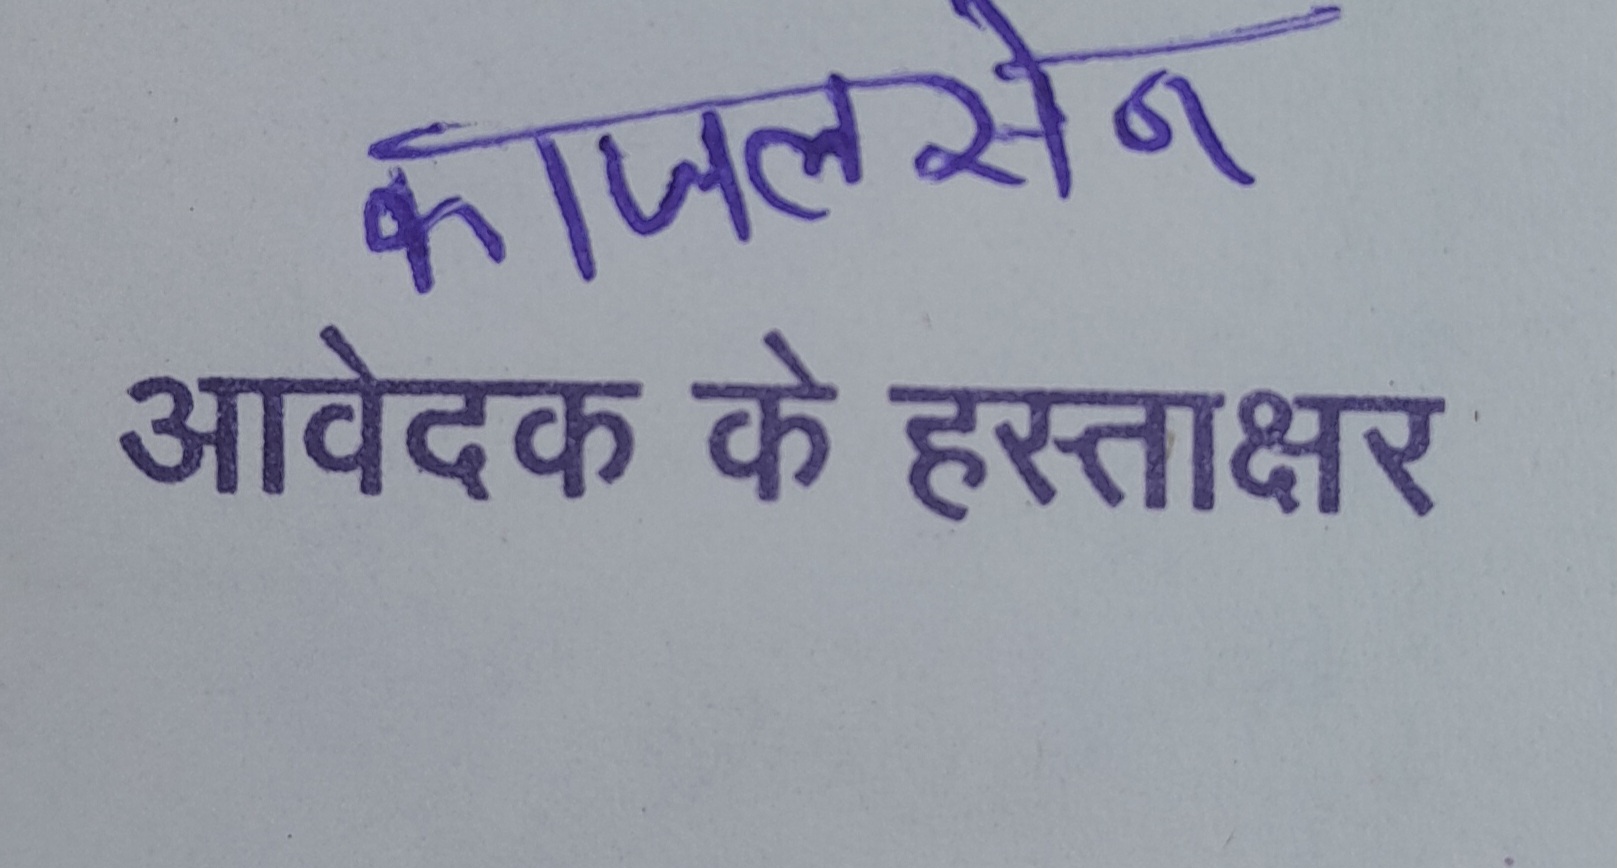 काजल सेन
आवेदक के हस्ताक्षर